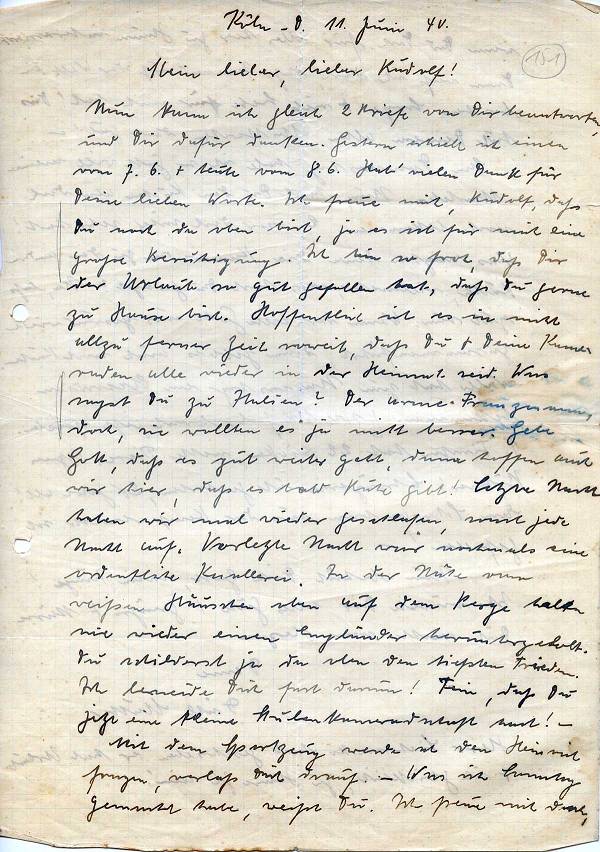 Köln - d. 11. Juni 40.
151
Mein lieber, lieber Rudolf!
Nun kann ich gleich 2 Briefe von Dir beantworten,
und Dir dafür danken. Gestern erhielt ich einen
vom 7.6. + heute vom 8.6. Hab' vielen Dank für
Deine lieben Worte. Ich freue mich, Rudolf, daß
Du noch da oben bist, ja es ist für mich eine
große Beruhigung. Ich bin so froh, daß Dir
der Urlaub so gut gefallen hat, daß Du gerne
zu Hause bist. Hoffentlich ist es in nicht
allzu ferner Zeit soweit, daß Du + Deine Kame-
raden alle wieder in der Heimat seid. Was
sagst Du zu Italien? Der arme Franzmann
doch, sie wollten es ja nicht besser. Gebe
Gott, daß es gut weiter geht, dann hoffen auch
wir hier, daß es bald Ruhe gibt! Letzte Nacht
haben wir mal wieder geschlafen, sonst jede
Nacht auf. Vorletzte Nacht war nochmals eine
ordentliche Knallerei. In der Nähe vom
weißen Häuschen oben auf dem Berge haben
sie wieder einen Engländer heruntergeholt.
Du schilderst ja da oben den tiefsten Frieden.
Ich beneide Dich fast darum! Fein, daß Du
jetzt eine kleine kameradschaft hast! -
Mit dem Sportzeug werde ich den Heinrich
fragen, verlaß Dich drauf. - Was ich Sonntag
gemacht habe, weißt Du. Ich freue mich doch,